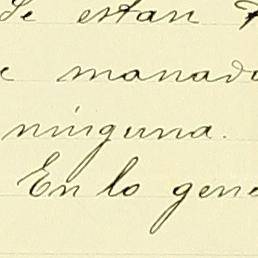 Se estan
manad
ninguna.
En lo gene